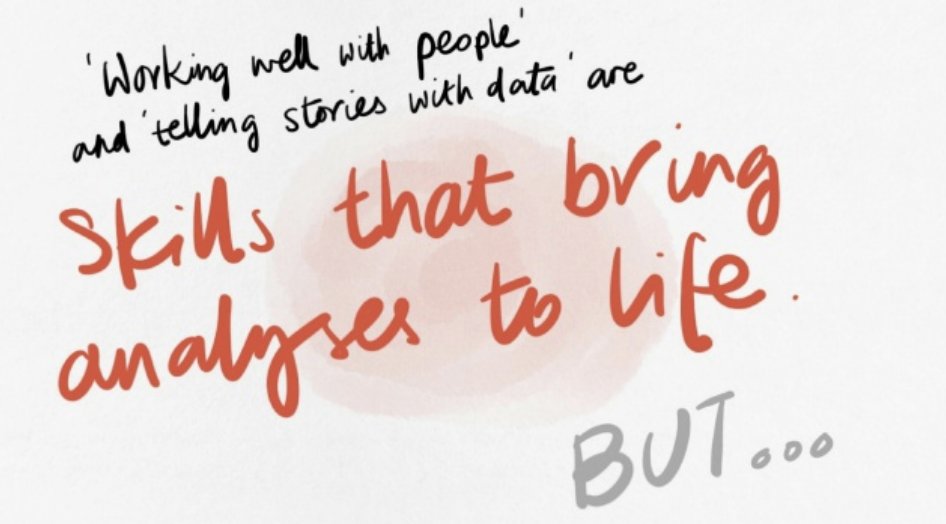 'Working well with people'
and 'telling stories with data' are
Skills that bring
analyses to life.
BUT...